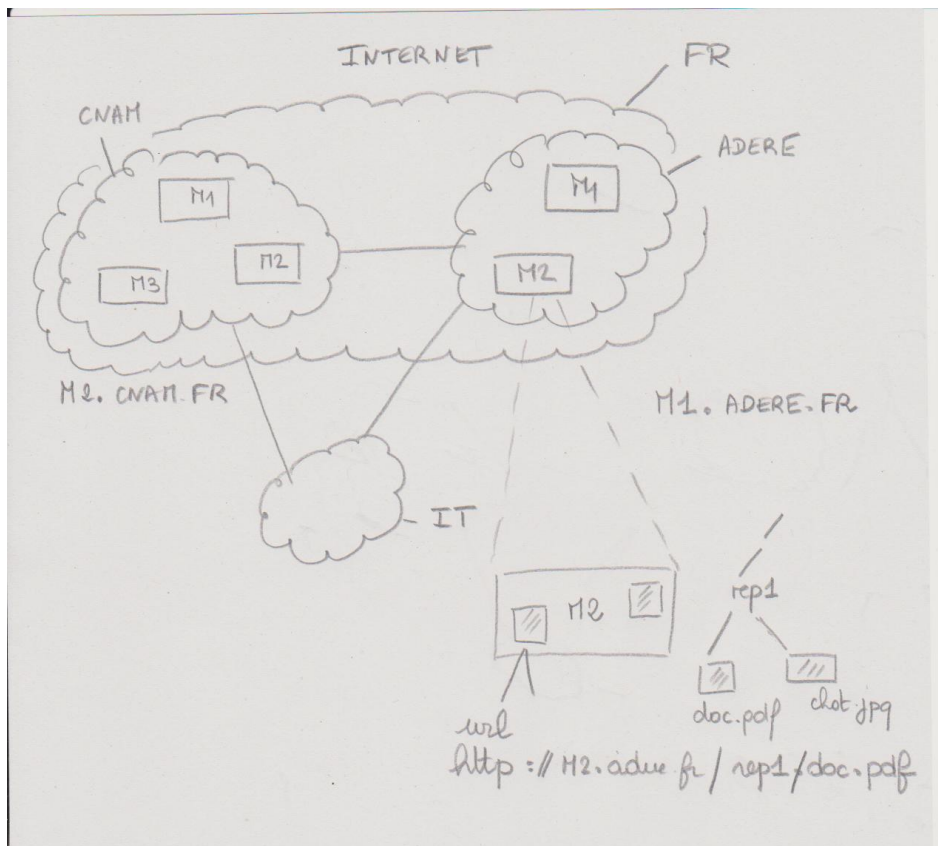 INTERNET
FR
CNAM
ADERE
M1
M1
M2
M2
M3
M2.CNAM.FR
M1.ADERE.FR
IT
rep1
M2
doc.pdf
chat.jpg
url
http://M2.adere.fr/rep1/doc.pdf